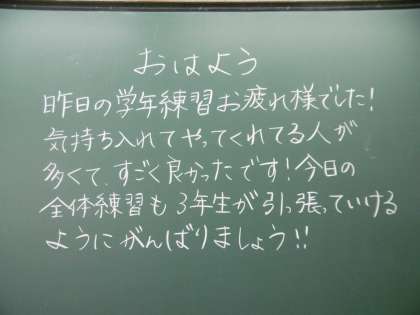 おはよう
昨日の学年練習お疲れ様でした!
気持ち入れてやってくれてる人が
多くて、すごく良かったです!今日の
全体練習も3年生が引っ張っていける
ようにがんばりましょう!!